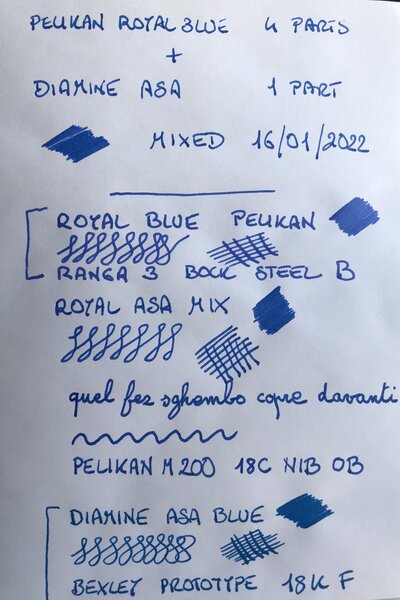 PELIKAN ROYAL BLUE 4 PARTS
+
DIAMINE ASA 1 PART
MIXED 16/01/2022
ROYAL BLUE PELIKAN
RANGA 3 BOCK STEEL B
ROYAL ASA MIX
quel fez sghembo copre davanti
PELIKAN M200 18C NIB OB
DIAMINE ASA BLUE
BEXLEY PROTOTYPE 18K F